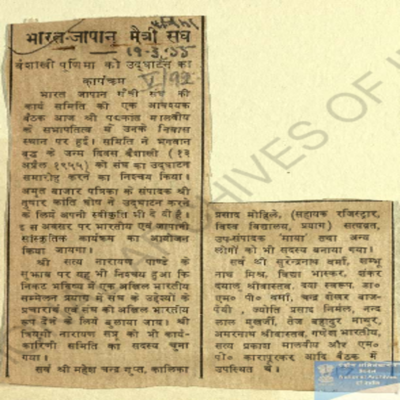 भारत-जापान मैत्री संघ
१९-३-५५
वैशाखी पूर्णिमा को उद्घाटन का
कार्यक्रम
V/92
भारत जापान मैत्री संघ की
कार्य समिति की एक आवश्यक
बैठक आज श्री पद्मकांत मालवीय
के सभापतित्व में उनके निवास
स्थान पर हुई। समिति ने भगवान
बुद्ध के जन्म दिवस वैशाखी (१३
अप्रैल १९५५) को संघ का उद्घाटन
समारोह करने का निश्चय किया।
अमृत बाजार पत्रिका के संपादक श्री
तुषार कांति घोष ने उद्घाटन करने
के लिये अपनी स्वीकृति भी दे दी है।
इस अवसर पर भारतीय एवं जापानी
सांस्कृतिक कार्यक्रम का आयोजन
किया जायगा।
श्री सत्य नारायण पाण्डे के
सुझाव पर यह भी निश्चय हुआ कि
निकट भविष्य में एक अखिल भारतीय
सम्मेलन प्रयाग में संघ के उद्देश्यों के
प्रचारार्थ एवं संघ को अखिल भारतीय
रूप देने के लिये बुलाया जाय। श्री
त्रिवेणी नारायण सप्रू को भी कार्य-
कारिणी समिति का सदस्य चुना
गया।
सर्व श्री महेश चन्द्र गुप्त, कालिका
प्रसाद मोहिले, (सहायक रजिस्ट्रार,
विश्व विद्यालय, प्रयाग) सत्यव्रत,
उप-संपादक 'माया' तथा अन्य
लोगों को भी सदस्य बनाया गया।
सर्व श्री सुरेन्द्रनाथ वर्मा, शम्भू
नाथ मिश्र, विद्या भास्कर, शंकर
दयाल श्रीवास्तव, दया स्वरूप, डा०
एम० पी० वर्मा, चन्द्र शेखर बाज-
पेयी, ज्योति प्रसाद निर्मल, नन्द
लाल मुखर्जी, तेज बहादुर माथुर,
अमरनाथ श्रीवास्तव, गणेश भारतीय,
सत्य प्रकाश मालवीय और एम०
पी० कारापुरकर आदि बैठक में
उपस्थित थे।
ARCHIVES OF IN